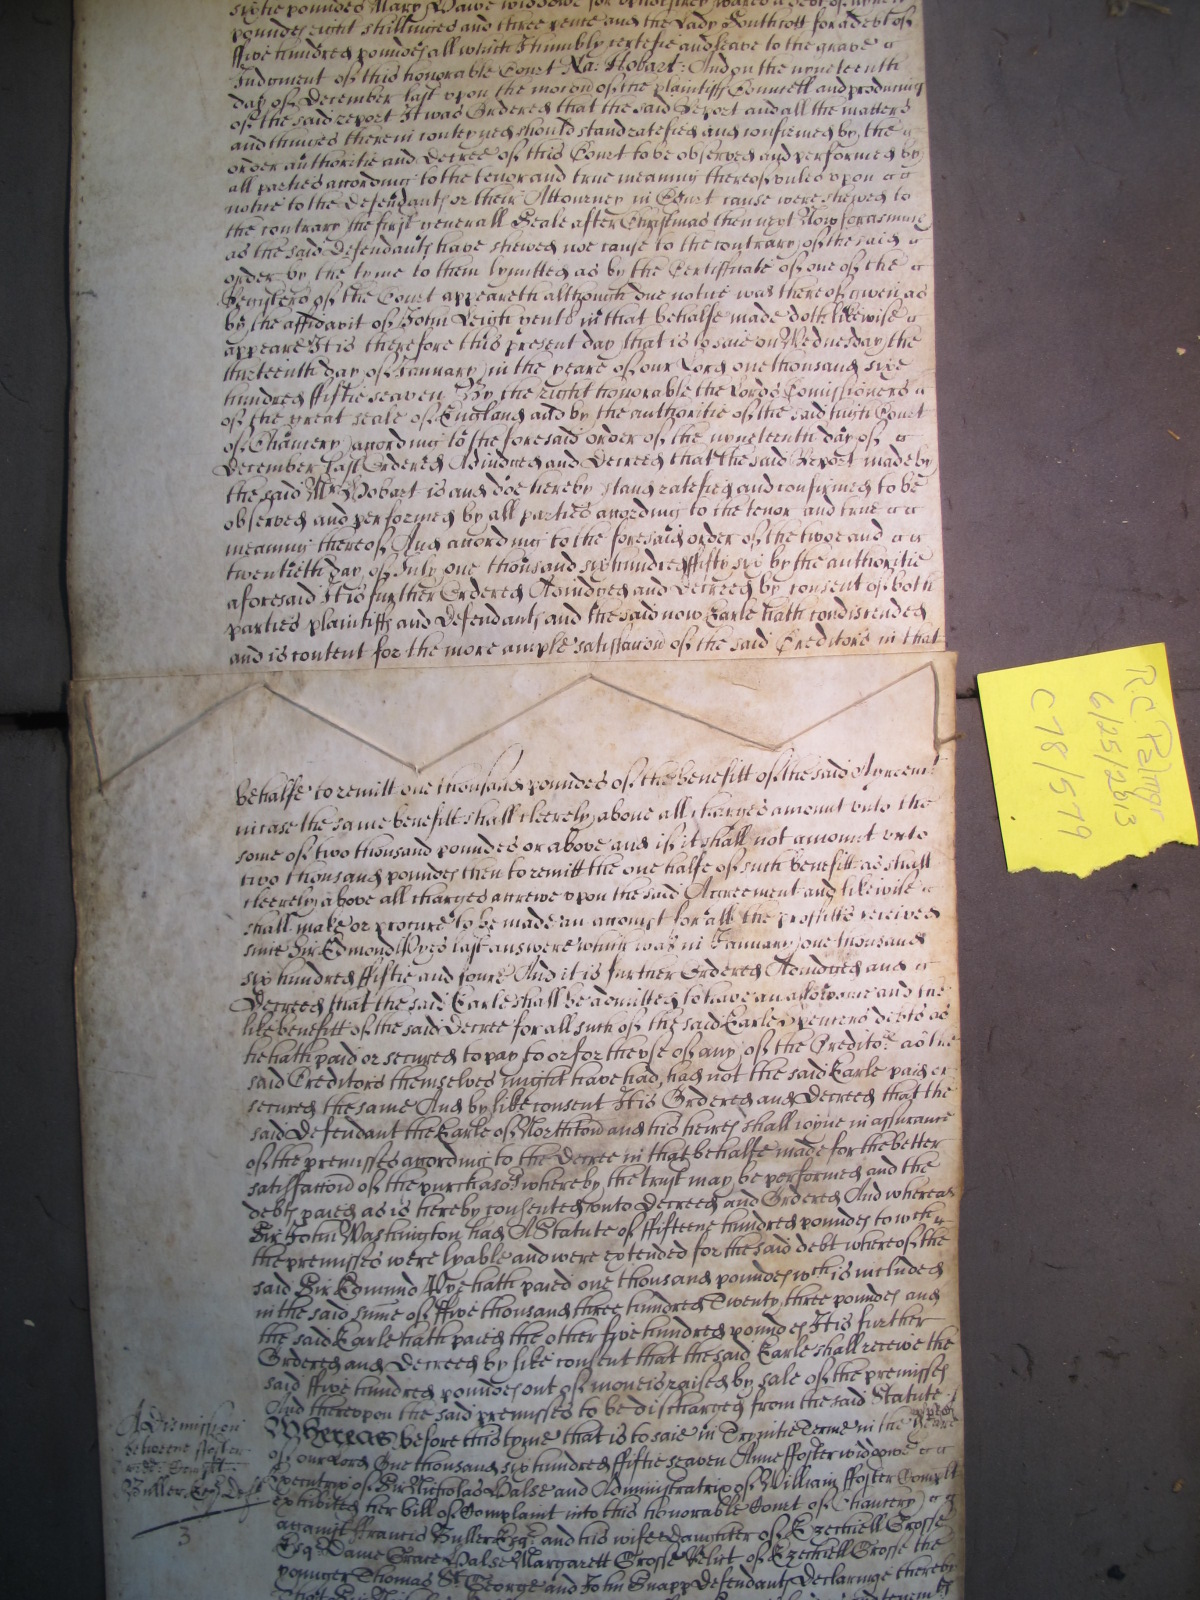 sixtie poundes Mary Dawe widdowe for
poundes eight shillinges and three pence and the Lady Southcott for a debt of
ffive hundred poundes all which I humbly certefie and leave to the grave
Iudgment of this honorable Court Na: Hobart: And on the nyneteenth
day of December last upon the mocon of the plaintiffs Councell and producing
of the said report It was Ordered that the said Report and all the matters
and thinges therein conteyned should stand ratefied and confirmed by the
order authoritie and decree of this Court to be observed and performed by
all parties according to the tenor and true meaning thereof unles upon
notice to the defendants or their Attourney in Court cause were shewed to
the contrary the first generall Seale after Christmas then next Now forasmuch
as the said Defendants have shewed noe cause to the contrary of the said
order by the tyme to them lymitted as by the Certifficate of one of the
Regesters of the Court appeareth although due notice was thereof given as
by the affidavit of John Leigh gent in that behalfe made doth likewise
appeare It is therefore this present day that is to saie on Wednesday the
thirteenth day of January in the yeare of our Lord one thousand sixe
hundred ffiftie seaven By the right honorable the Lords Comissioners
of the great seale of England and by the authoritie of the said high Court
of Chancery according to the foresaid order of the nyneteenth day of
December last Ordered Adiudged and Decreed that the said Report made by
the said Mr Hobart is and doe hereby stand ratefied and confirmed to be
observed and performed by all parties according to the tenor and true
meaning thereof And according to the foresaid order of the twoe and
twentieth day of July one thousand six hundred ffifty six by the authoritie
aforesaid It is further Ordered Adiudged and decreed by consent of both
parties plaintiffs and Defendants and the said now Earle hath condiscended
and is content for the more ample satisfaccion of the said Creditors in that
behalfe to remitt one thousand poundes of the benefitt of the said Agreemt
in case the same benefitt shall cleerely above all charges amount unto the
some of two thousand poundes or above and if it shall not amount unto
two thousand poundes then to remitt the one halfe of such benefitt as shall
cleerely above all charges accrewe upon the said Agreement and likewise
shall make or procure to be made an accompt for all the proffitts received
since Sir Edmond Pyes last answere which was in January one thousand
six hundred ffiftie and foure And it is further Ordered Adiudged and
Decreed that the said Earle shall be admitted to have an allowance and the
like benefitt of the said Decree for all such of the said Earle Spencers debts as
he hath paid or secured to pay to or for the use of any of the Creditors as the
said Creditors themselves might have had, had not the said Earle paid or
secured the same And by like consent It is Ordered and Decreed that the
said Defendant the Earle of Northton and his heires shall ioyne in assurance
of the premisses according to the Decree in that behalfe made for the better
satisfaccion of the purchasors whereby the trust may be performed and the
debts paied as is hereby consented unto Decreed and Ordered And whereas
Sir John Washington had A Statute of ffifteene hundred poundes to wch
the premisses were lyable and were extended for the said debt whereof the
said Sir Edmund Pye hath paied one thousand poundes wch is included
in the said sume of ffive thousand three hundred Twenty three poundes and
the said Earle hath paied the other five hundred poundes It is further
Ordered and Decreed by like consent that the said Earle shall receive the
said ffive hundred poundes out of moneis raised by sale of the premisses
And thereupon the said premisses to be discharged from the said Statute
Whereas before this tyme that is to saie in Trynitie Terme in the yeare
of our Lord One thousand six hundred ffiftie seaven Anne ffoster widdowe
executrix of Sir Nicholas Halse and Administratrix of William ffoster Complt
exhibited her bill of Complaint into this honorable Court of Chancery
against ffrancis Buller Esqr and his wife daughter of Ezechiell Grosse
Esqr Dame Grace Halse Margarett Grosse Relict of Ezechiell Grosse the
younger Thomas St George and John Snapp Defendants Declaringe thereby
A Dismission
betweene ffoster
Buller Esq Deft
3
R.C Palmer
6/25/2013
C78/579